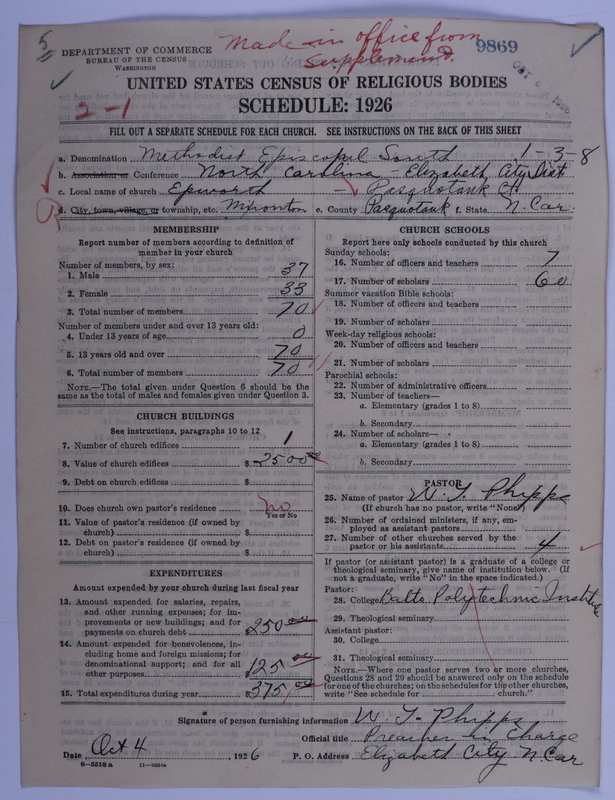 5
Made in office from
Supplement.
9869
DEPARTMENT OF COMMERCE
BUREAU OF THE CENSUS
WASHINGTON
UNITED STATES CENSUS OF RELIGIOUS BODIES
2-1
SCHEDULE: 1926
FILL OUT A SEPARATE SCHEDULE FOR EACH CHURCH. SEE INSTRUCTIONS ON THE BACK OF THIS SHEET
a. Denomination Methodist Episcopal South 1-3-8
b. Association or Conference North Carolina - Elizabeth City Dist
c. Local name of church Epworth - Pasquotank Ct.
d. City, town, village, or township, etc. e. County Pasquotank f. State N. Car.
MEMBERSHIP
Report number of members according to definition of
member in your church
Number of members, by sex:
1. Male 37
2. Female 33
3. Total number of members 70
Number of members under and over 13 years old:
4. Under 13 years of age 0
5. 13 years old and over 70
6. Total number of members 70
NOTE.—The total given under Question 6 should be the
same as the total of males and females given under Question 3.
CHURCH BUILDINGS
See instructions, paragraphs 10 to 12
7. Number of church edifices 1
8. Value of church edifices $ 2500.00
9. Debt on church edifices $
10. Does church own pastor's residence no
Yes or No
11. Value of pastor's residence (if owned by
church) $
12. Debt on pastor's residence (if owned by
church) $
EXPENDITURES
Amount expended by your church during last fiscal year
13. Amount expended for salaries, repairs,
and other running expenses; for im-
provements or new buildings; and for
payments on church debt $250.00
14. Amount expended for benevolences, in-
cluding home and foreign missions; for
denominational support; and for all
other purposes $125.00
15. Total expenditures during year $375.00
CHURCH SCHOOLS
Report here only schools conducted by this church
Sunday schools:
16. Number of officers and teachers 7
17. Number of scholars 60
Summer vacation Bible schools:
18. Number of officers and teachers
19. Number of scholars
Week-day religious schools:
20. Number of officers and teachers
21. Number of scholars
Parochial schools:
22. Number of administrative officers
23. Number of teachers—
a. Elementary (grades 1 to 8)
b. Secondary
24. Number of scholars—
a. Elementary (grades 1 to 8)
b. Secondary
PASTOR
25. Name of pastor W. T. Phipps
(If church has no pastor, write "None")
26. Number of ordained ministers, if any, em-
ployed as assistant pastors
27. Number of other churches served by the
pastor or his assistants 4
If pastor (or assistant pastor) is a graduate of a college or
theological seminary, give name of institution below. (If
not a graduate, write "No" in the space indicated.)
Pastor:
28. College Balto. Polytechnic Institute
29. Theological seminary
Assistant pastor:
30. College
31. Theological seminary
NOTE.—Where one pastor serves two or more churches,
Questions 28 and 29 should be answered only on the schedule
for one of the churches; on the schedules for the other churches,
write "See schedule for church."
Signature of person furnishing information W. T. Phipps
Official title Preacher in Charge
Date Oct 4, 1926 P. O. Address Elizabeth City N. Car
8-5518 a